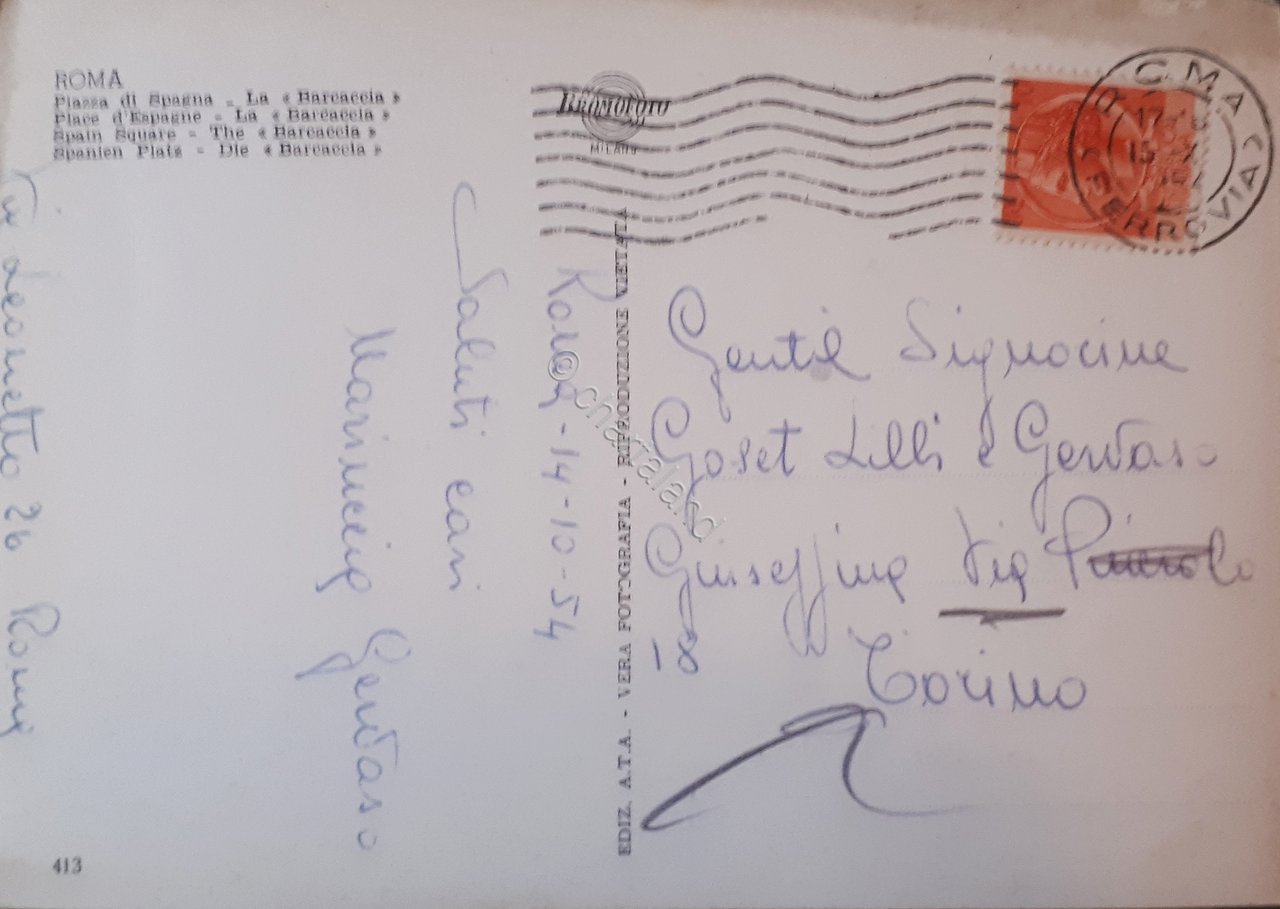 ROMA
Piazza di Spagna - La « Barcaccia »
Place d'Espagne - La « Barcaccia »
Spain Square - The « Barcaccia »
Spanien Platz - Die « Barcaccia »
BROMOFOTO
MILANO
ROMA FERROVIA
17
15 X
EDIZ. A.T.A. - VERA FOTOGRAFIA - RIPRODUZIONE VIETATA
Roma - 14-10-54
Saluti cari
Mariuccia Gervaso
26 Roma
Gentil Signorine
Goset Lilli e Gervaso
Giuseffina Via
Torino
413
© chartaland